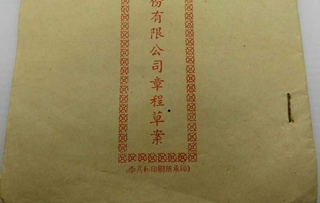 份有限公司章程草案